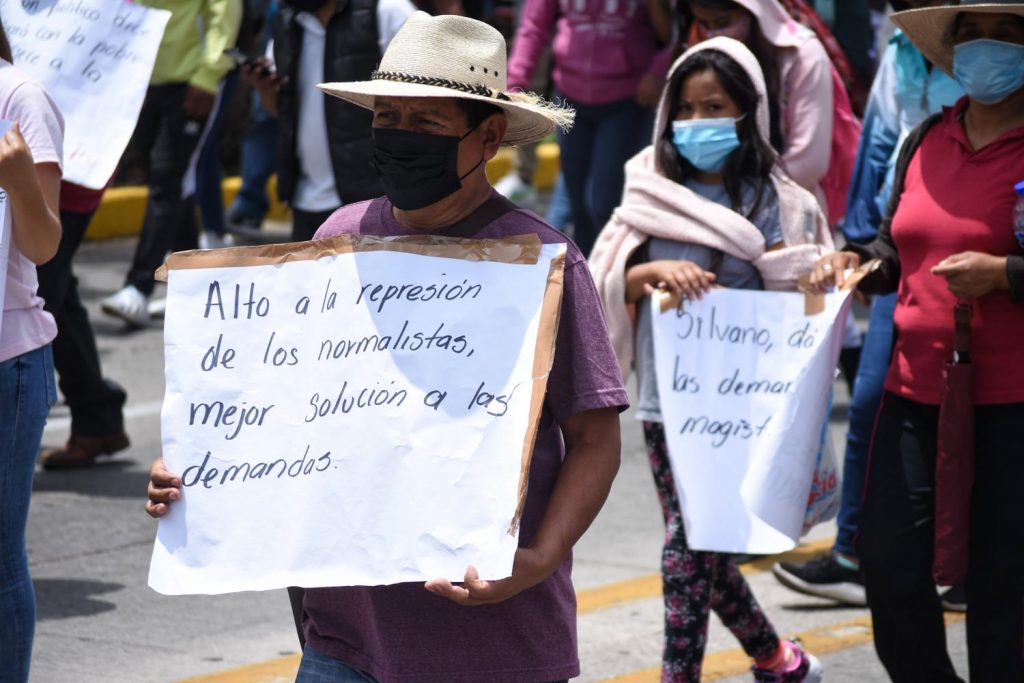 político debe
con la pobre
a la
Alto a la represión
de los normalistas,
mejor solución a las
demandas.
Silvano, dá
las deman
magist